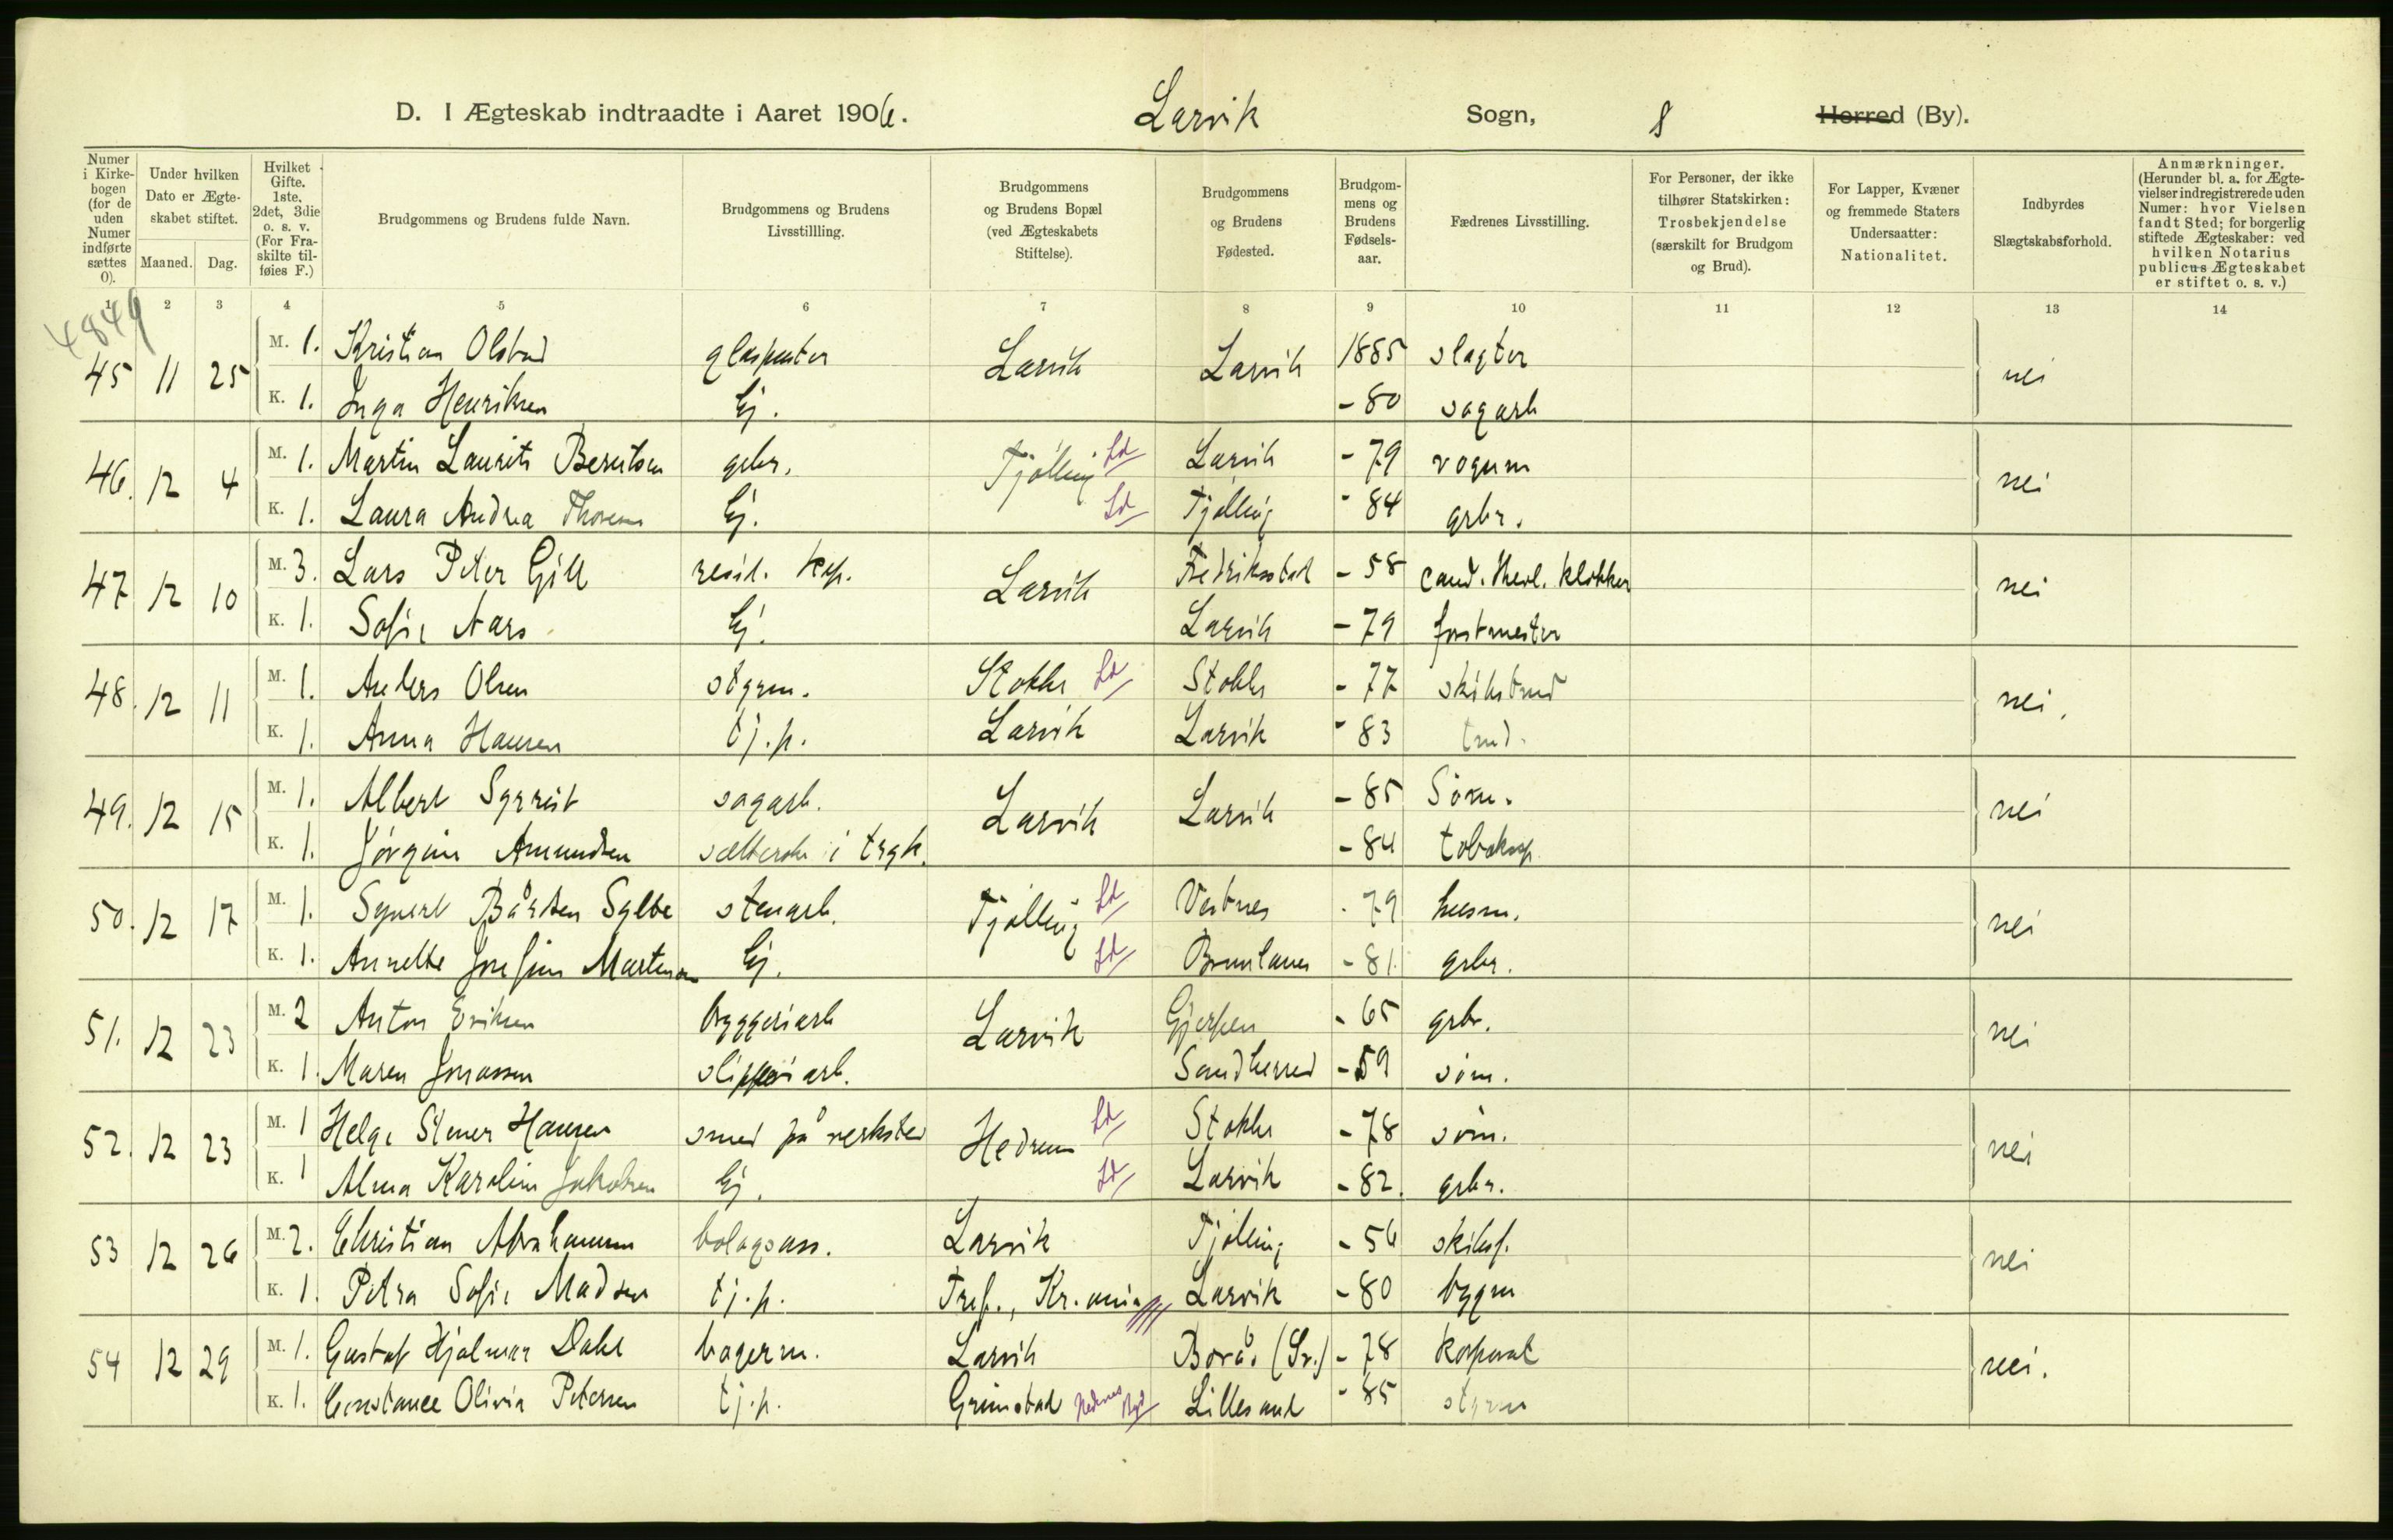 D. I Ægteskab indtraadte i Aaret 1906. Larvik Sogn, 8 Herred (By).
Numer i Kirkebogen (for de uden Numer indførte sættes 0).
Under hvilken Dato er Ægteskabet stiftet.
Maaned. Dag.
Hvilket Gifte. 1ste, 2det, 3die o. s. v. (For Fraskilte tilføies F.)
Brudgommens og Brudens fulde Navn.
Brudgommens og Brudens Livsstillling.
Brudgommens og Brudens Bopæl (ved Ægteskabets Stiftelse).
Brudgommens og Brudens Fødested.
Brudgommens og Brudens Fødselsaar.
Fædrenes Livsstilling.
For Personer, der ikke tilhører Statskirken: Trosbekjendelse (særskilt for Brudgom og Brud).
For Lapper, Kvæner og fremmede Staters Undersaatter: Nationalitet.
Indbyrdes Slægtskabsforhold.
Anmærkninger. (Herunder bl. a. for Ægtevielser indregistrerede uden Numer: hvor Vielsen fandt Sted; for borgerlig stiftede Ægteskaber: ved hvilken Notarius publicus Ægteskabet er stiftet o. s. v.)
1 2 3 4 5 6 7 8 9 10 11 12 13 14
4849
45 11 25 M. 1. Kristian Olstad glaspuster Larvik Larvik 1885 slagter nei
K. 1. Inga Henriksen Ej. - 80 sagarb
46. 12 4 M. 1. Martin Laurits Berntsen gbr. Tjølling Ld Larvik - 79 vognm nei
K. 1. Laura Andrea Thorsen Ej. Ld Tjølling - 84 grbr.
47 12 10 M. 3. Lars Peter Gill resid. kap. Larvik Fredriksstad - 58 cand. theol. klokker nei
K. 1. Sofie Aars Ej. Larvik - 79 forstmester
48. 12 11 M. 1. Anders Olsen styrm. Stokke Ld Stokke - 77 skibstmd nei.
K. 1. Anna Hansen tj.p. Larvik Larvik - 83 tmd.
49. 12 15 M. 1. Albert Syrrist sagarb. Larvik Larvik - 85 Sóm. nei
K. 1. Jørgine Amundsen sætterske i tryk. - 84 tobaksp
50. 12 17 M. 1. Synert Bårdsen Sylte stenarb. Tjølling Ld Vestnes - 79 husm. nei
K. 1. Annette Josefine Martensen Ej. Ld Brunlanes - 81 grbr.
51. 12 23 M. 2 Anton Eriksen bryggeriarb Larvik Gjerpen - 65 grbr. nei
K. 1. Maren Jonassen sliperiarb. Sandherred - 59 sóm.
52. 12 23 M. 1 Helge Stener Hansen smed på verksted Hedrum Ld Stokke - 78 sóm. nei
K. 1 Alma Karoline Jakobsen Ej. Ld Larvik - 82. grbr.
53 12 26 M. 2. Christian Abrahamsen bolagsass. Larvik Tjølling - 56 skibsf. nei
K. 1. Petra Sofie Madsen tj.p. Tref., Kr.ania Larvik - 80 bygm
54 12 29 M. 1. Gustaf Hjalmar Dahl bagerm. Larvik Borås (Sv.) - 78 korporal nei.
K. 1. Constance Olivia Petersen tj.p. Grimstad Nedenes By Lillesand - 85 styrm